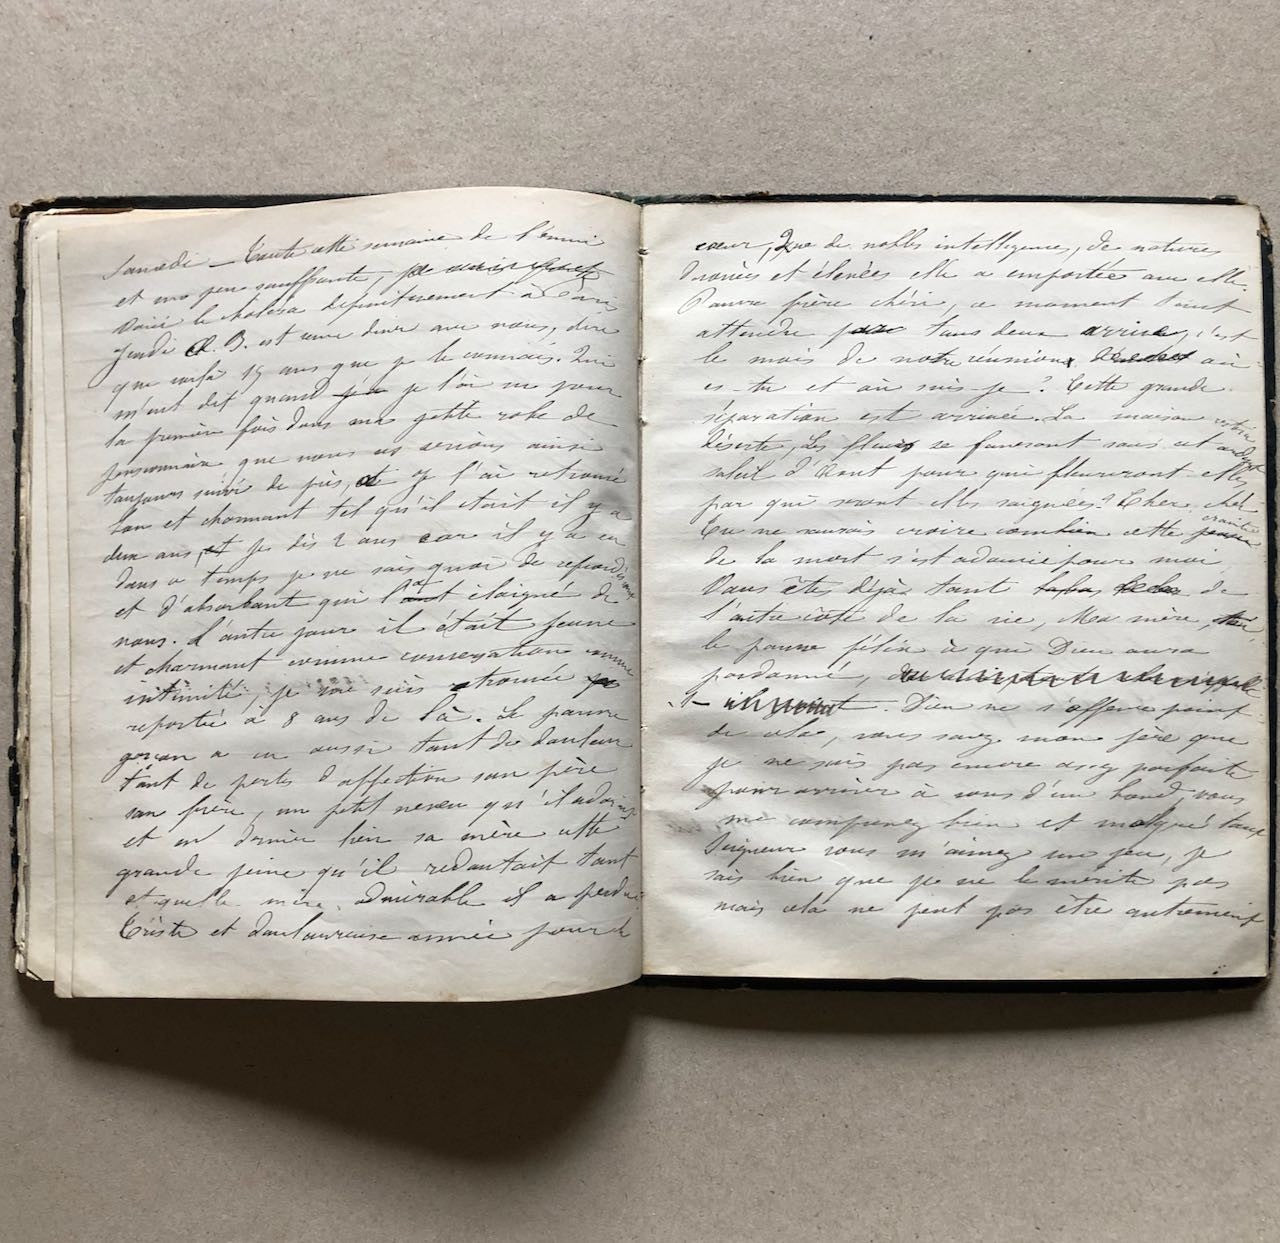 Samedi — Toute cette semaine de l'ennui
et un peu souffrante,
Voici le choléra définitivement à Paris
Jeudi A. B. est venu diner avec nous, dire
que voilà 15 ans que je le connais. Qui
m'eut dit quand je l'ai vu pour
la première fois dans ma petite robe de
pensionnaire que nous nous serions ainsi
toujours suivi de près, et je l'ai retrouvé
bon et charmant tel qu'il était il y a
deux ans et je dis 2 ans car il y a eu
dans ce temps je ne sais quoi de refroidissant
et d'absorbant qui l'a éloigné de
nous. L'autre jour il était jeune
et charmant comme conversation comme
intimité, je me suis trouvée
reportée à 8 ans de là. Le pauvre
garçon a eu aussi tant de douleur
tant de pertes d'affection son père
son frère, un petit neveu qu'il adorait
et en dernier lieu sa mère cette
grande peine qu'il redoutait tant
et quelle mère admirable il a perdue
Triste et douloureuse année pour le
cœur, Que de nobles intelligences, de natures
et élevées elle a emportées avec elle.
Pauvre frère chéri, ce moment tant
attendu pour tous deux arrive, c'est
le mois de notre réunion, où
es-tu et où suis-je? Cette grande
séparation est arrivée. La maison restera
déserte, Les fleurs se faneront sous cet ardent
soleil d'Août pour qui fleuriront-elles
par qui seront-elles soignées? Cher, chéri
Tu ne saurais croire combien cette crainte
de la mort s'est adoucie pour moi
Vous êtes déjà tant de
l'autre côté de la vie, Ma mère,
le pauvre félix à qui Dieu aura
pardonné,
Dieu ne s'offense point
de cela, vous savez mon père que
je ne suis pas encore assez parfaite
pour arriver à vous d'un bond, vous
me comprenez bien et malgré tout
Seigneur vous m'aimez un peu, je
sais bien que je ne le mérite pas
mais cela ne peut pas être autrement